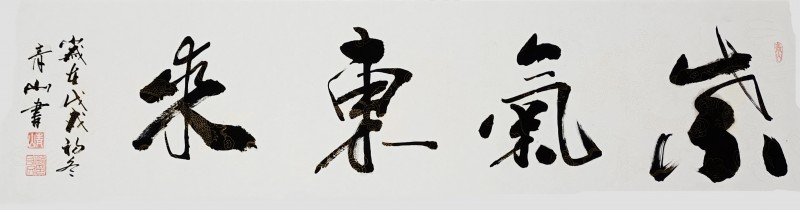 紫氣東來
歲在戊戌初冬
青山書